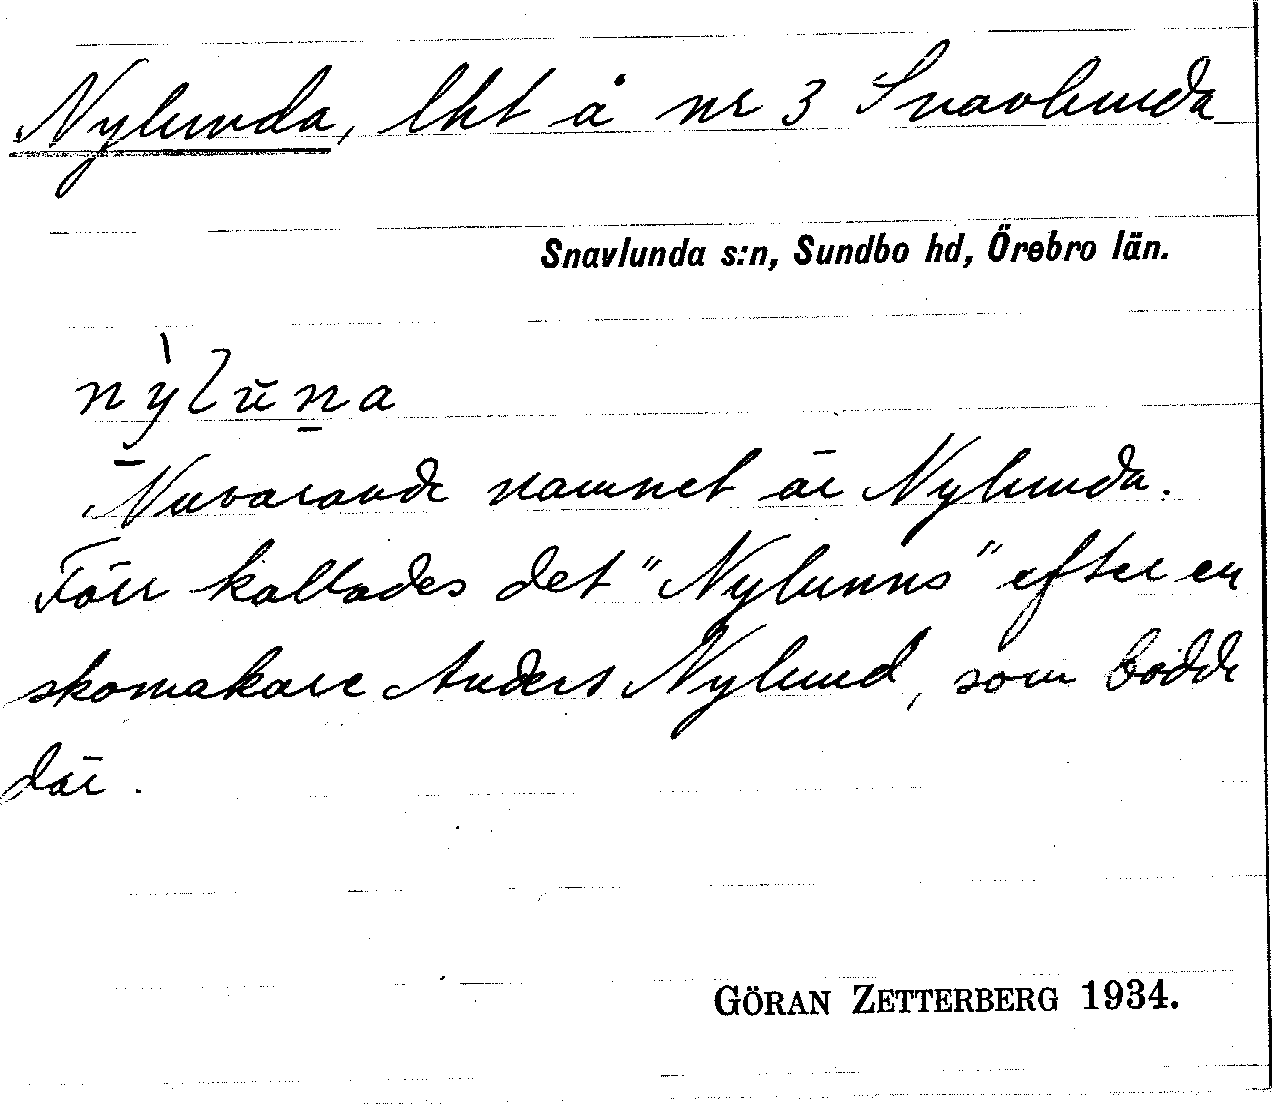 Nylunda, lht å nr 3 Snavlunda
Snavlunda s:n, Sundbo hd, Örebro län.
nỳlūna
Nuvarande namnet är Nylunda.
Förr kallades det "Nylunns" efter en
skomakare Anders Nylund, som bodde
där.
GÖRAN ZETTERBERG 1934.